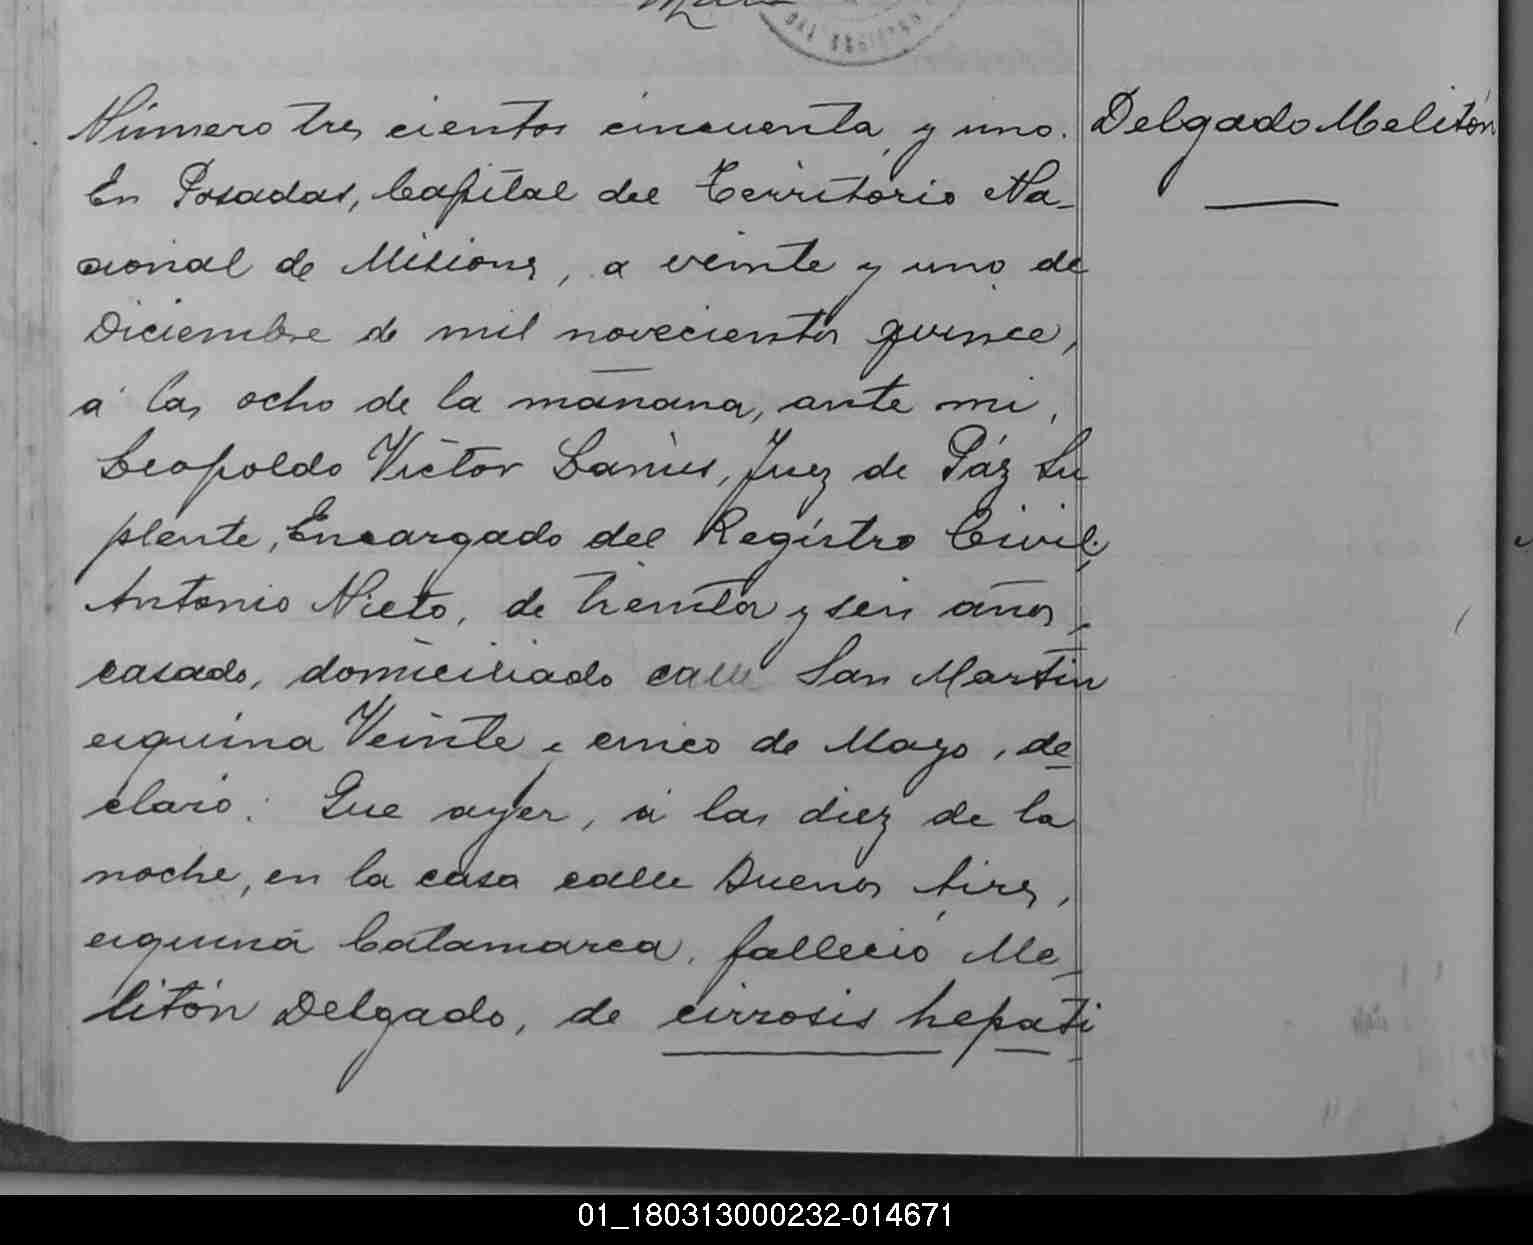 Número tres cientos cincuenta y uno.
Delgado Melitón
En Posadas, Capital del Territorio Na-
cional de Misiones, a veinte y uno de
Diciembre de mil novecientos quince,
á las ocho de la mañana, ante mi,
Leopoldo Victor Lanús, Juez de Páz Su
plente, Encargado del Registro Civil;
Antonio Nieto, de treinta y seis años,
casado, domiciliado calle San Martin
esquina Veinte y cinco de Mayo, de
claró: Que ayer, á las diez de la
noche, en la casa calle Buenos Aires,
esquina Catamarca, falleció Me-
litón Delgado, de cirrosis hepati
01_180313000232-014671